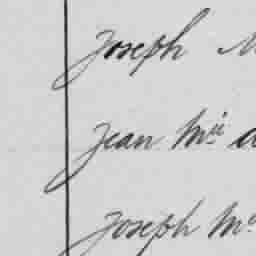 Joseph M
Jean Mie a
Joseph Me